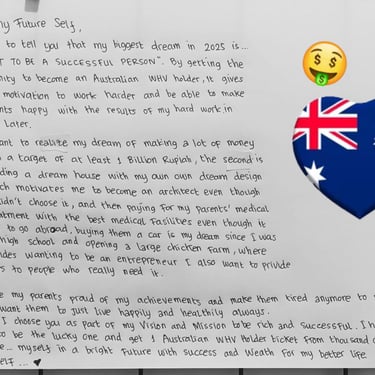 ny Future Self,
to tell you that my biggest dream in 2025 is...
T TO BE A SUCCESSFUL PERSON". By getting the
nity to become an Australian WHV holder, It gives
motivation to work harder and be able to make
nts happy with the results of my hard work in
Later.
ant to realize my dream of making a lot of money
a target of at least 1 Billion Rupiah, the second is
ding a dream house with my own own dream design
ch motivates me to become an architect even though
uldn't choose it, and then paying for my parents' medical
atment with the best medical Facilities even though it
to go abroad, buying them a car is my dream since I was
high school and opening a large chicken Farm, where
ides wanting to be an entrepreneur I also want to privide
s to people who really need it.
e my parents proud of my achievements and make them tired anymore to
want them to just live happily and healthily always.
I choose you as part of my Vision and Mission to be rich and successful. I h
to be the lucky one and get 1 Australian WHV Holder ticket from thousand
e... myself in a bright Future with Success and Weath For my better life
elf ...